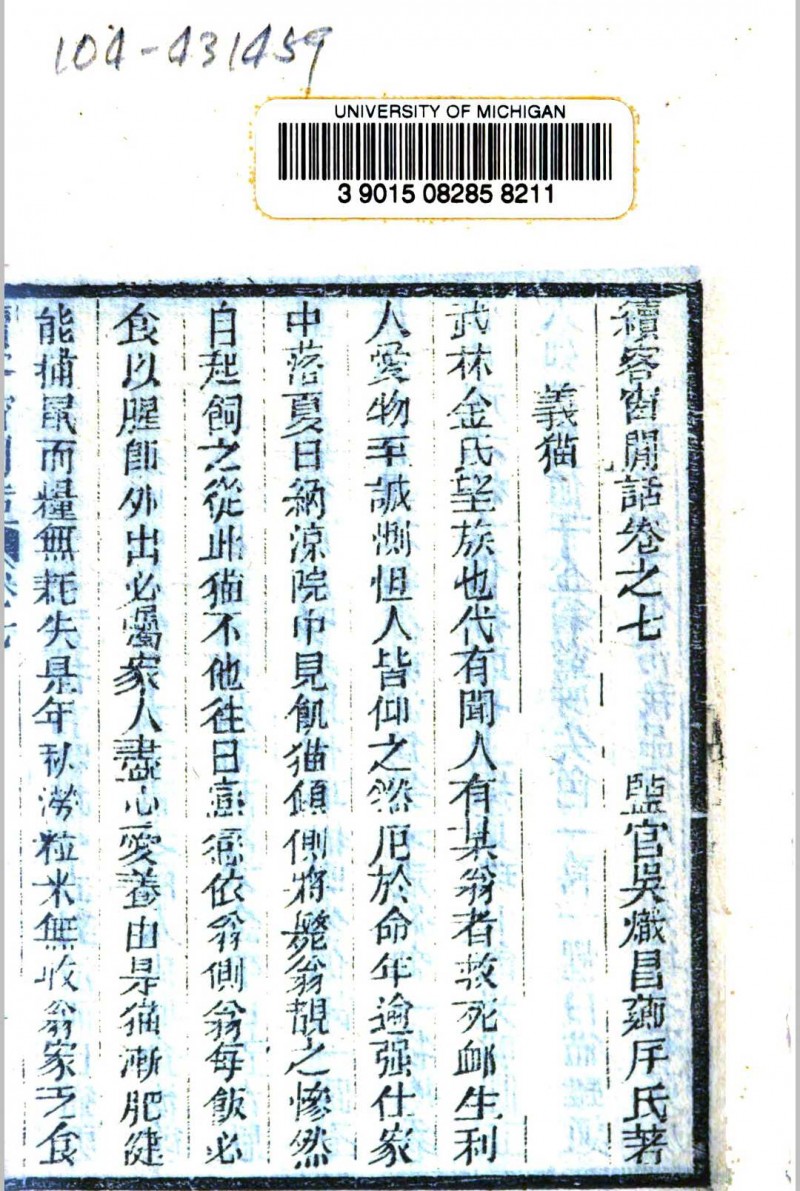 104-431459
UNIVERSITY OF MICHIGAN
3 9015 08285 8211
續客窗閒話卷之七
鹽官吳熾昌薌厈氏著
義猫
武林金氏望族也代有聞人有某翁者救死䘏生利
人愛物至誠惻怛人皆仰之然厄於命年逾强仕家
中落夏日納涼院中見飢猫傾側將斃翁覩之慘然
自起飼之從此猫不他往日戀戀依翁側翁每飯必
食以腥卽外出必屬家人盡心愛養由是猫漸肥健
能捕鼠而糧無耗失是年秋澇粒米無收翁家乏食